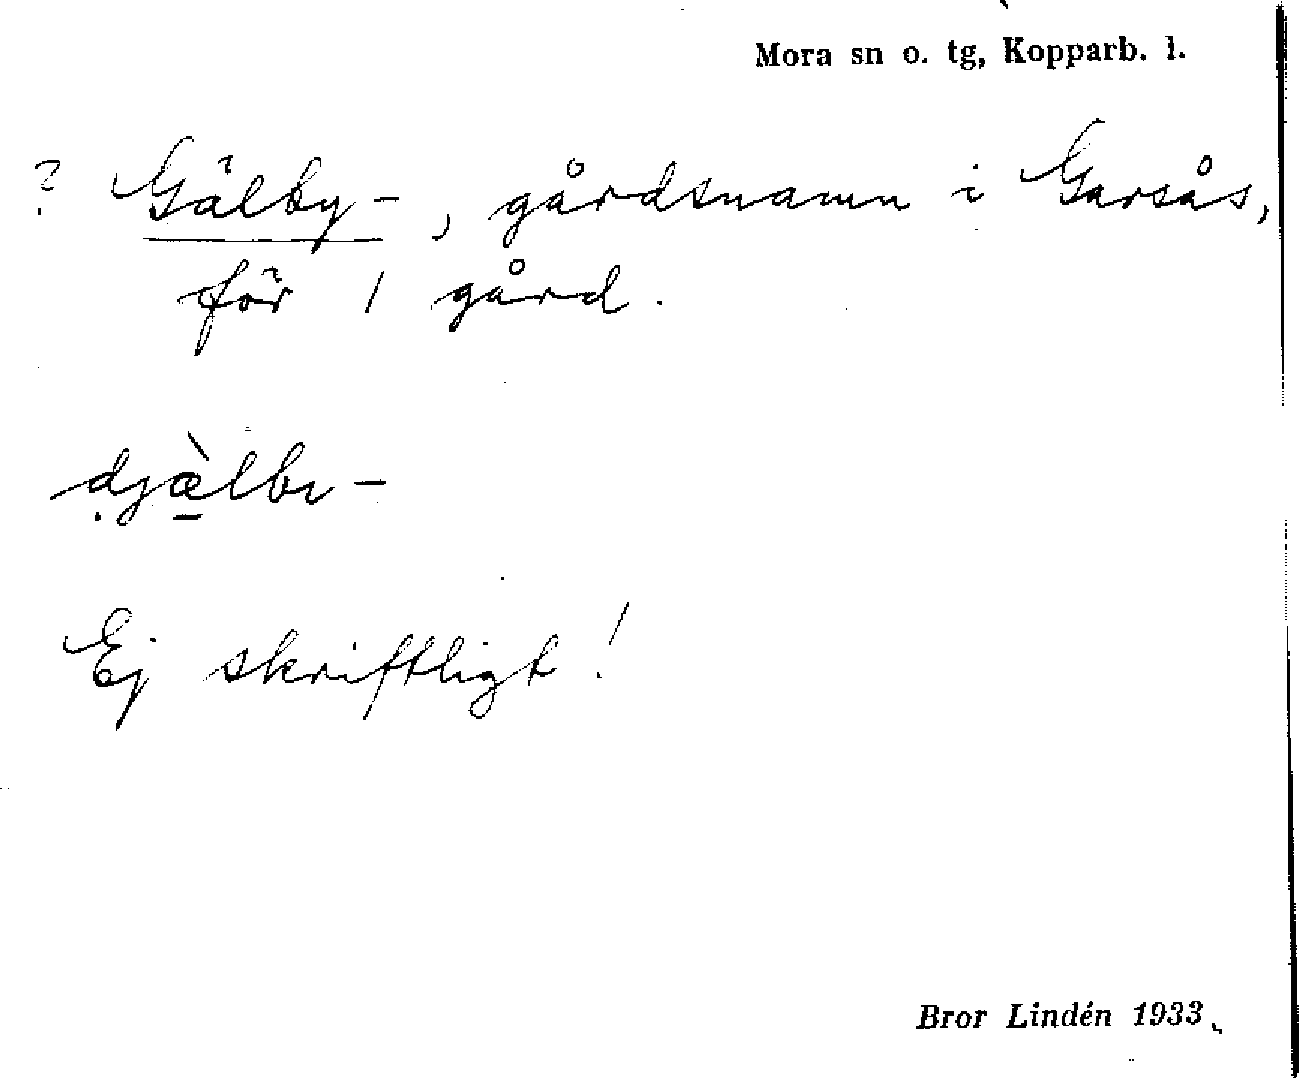 Mora sn o. tg, Kopparb. l.
? Gälby-, gårdsnamn i Garsås,
för 1 gård.
dj̣æ̠̀lbι-
Ej skriftligt!
Bror Lindén 1933.